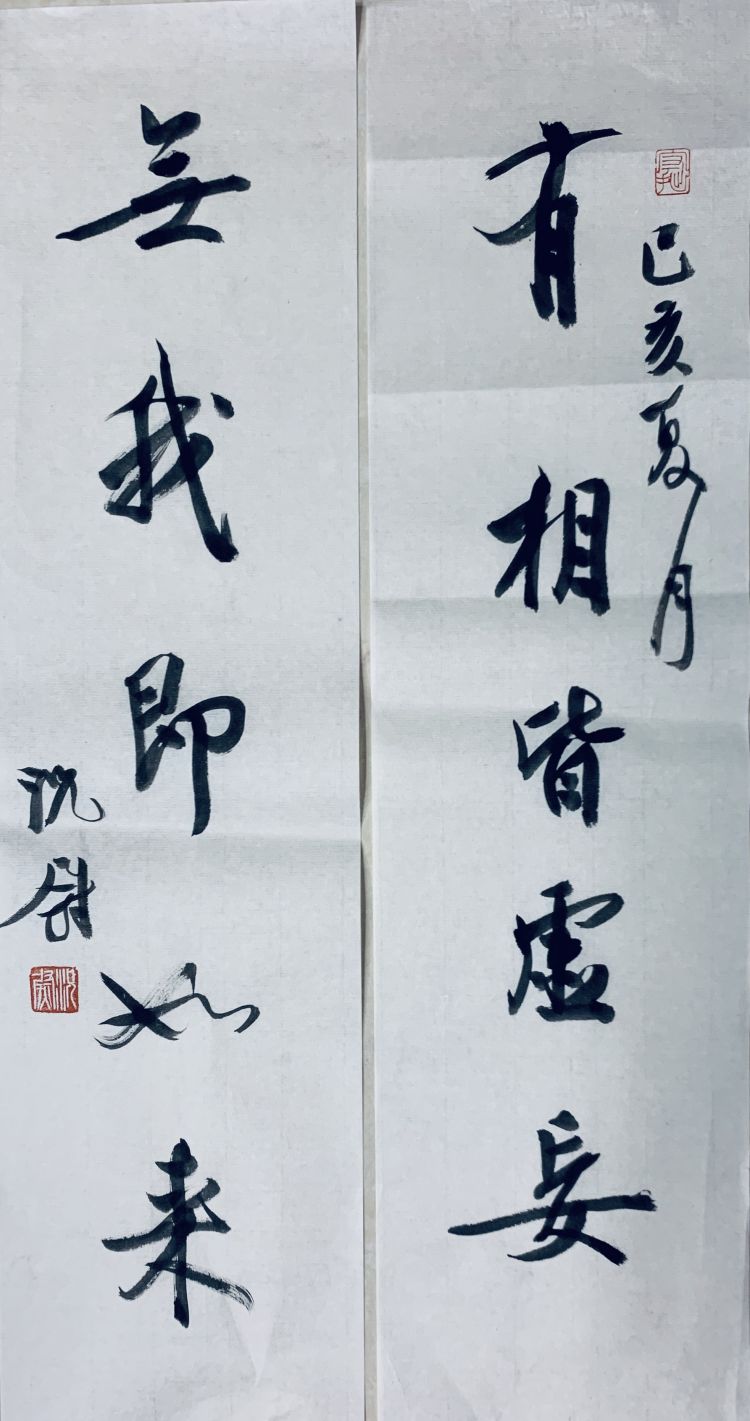 己亥夏月
有相皆虛妄
無我即如来
沈尉